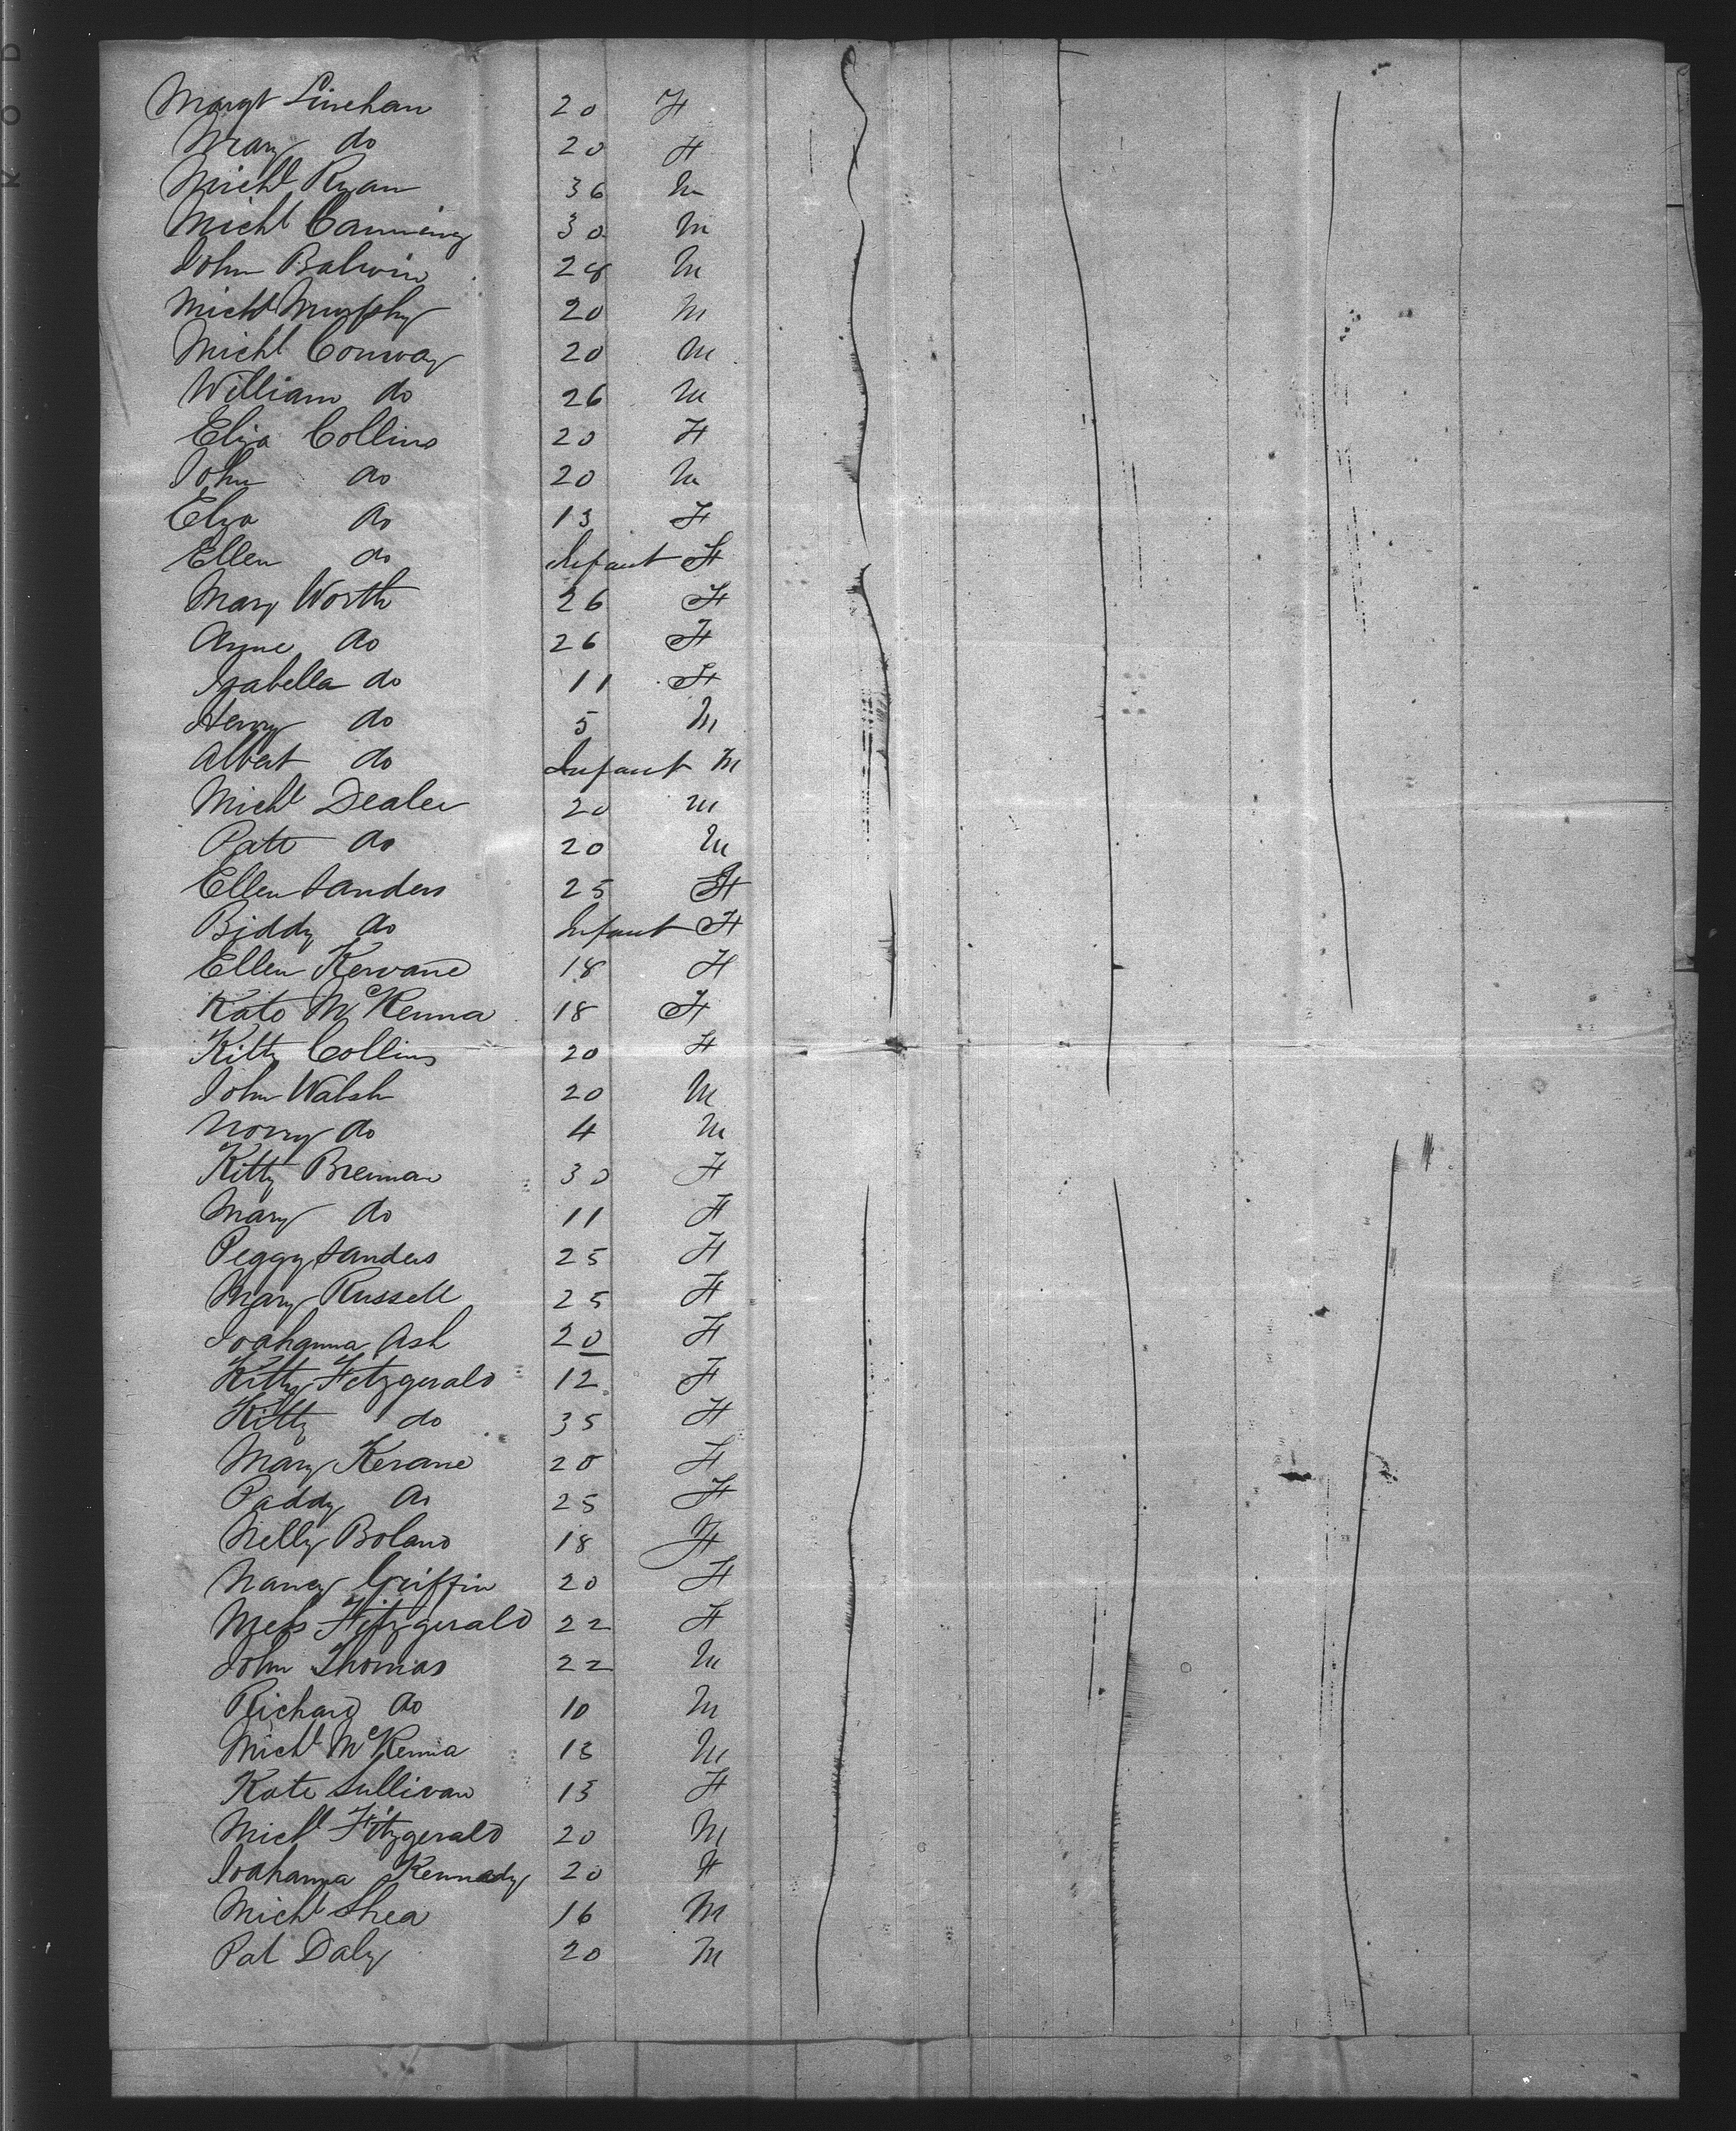 Margt Linehan 20 F
Mary do 20 F
Michl Ryan 36 M
Michl Canning 30 M
John Balwin 28 M
Michl Murphy 20 M
Michl Conway 20 M
William do 26 M
Eliza Collins 20 F
John do 20 M
Eliza do 13 F
Ellen do Infant F
Mary Worth 26 F
Anne do 26 F
Isabella do 11 F
Henry do 5 M
Albert do Infant M
Michl Dealer 20 M
Patt do 20 M
Ellen Sanders 25 F
Biddy do Infant F
Ellen Kervane 18 F
Kate McKenna 18 F
Kitty Collins 20 F
John Walsh 20 M
Norry do 4 M
Kitty Brennan 30 F
Mary do 11 F
Peggy Sanders 25 F
Mary Russell 25 F
Joahanna Ash 20 F
Kitty Fitzgerald 12 F
Kitty do 35 F
Mary Kerane 20 F
Paddy do 25 F
Nelly Boland 18 F
Nancy Griffin 20 F
Fitzgerald 22 F
John Thomas 22 M
Richard do 10 M
Michl McKenna 13 M
Kate Sullivan 13 F
Michl Fitzgerald 20 M
Joahanna Kennady 20 F
Michl Shea 16 M
Pat Daly 20 M